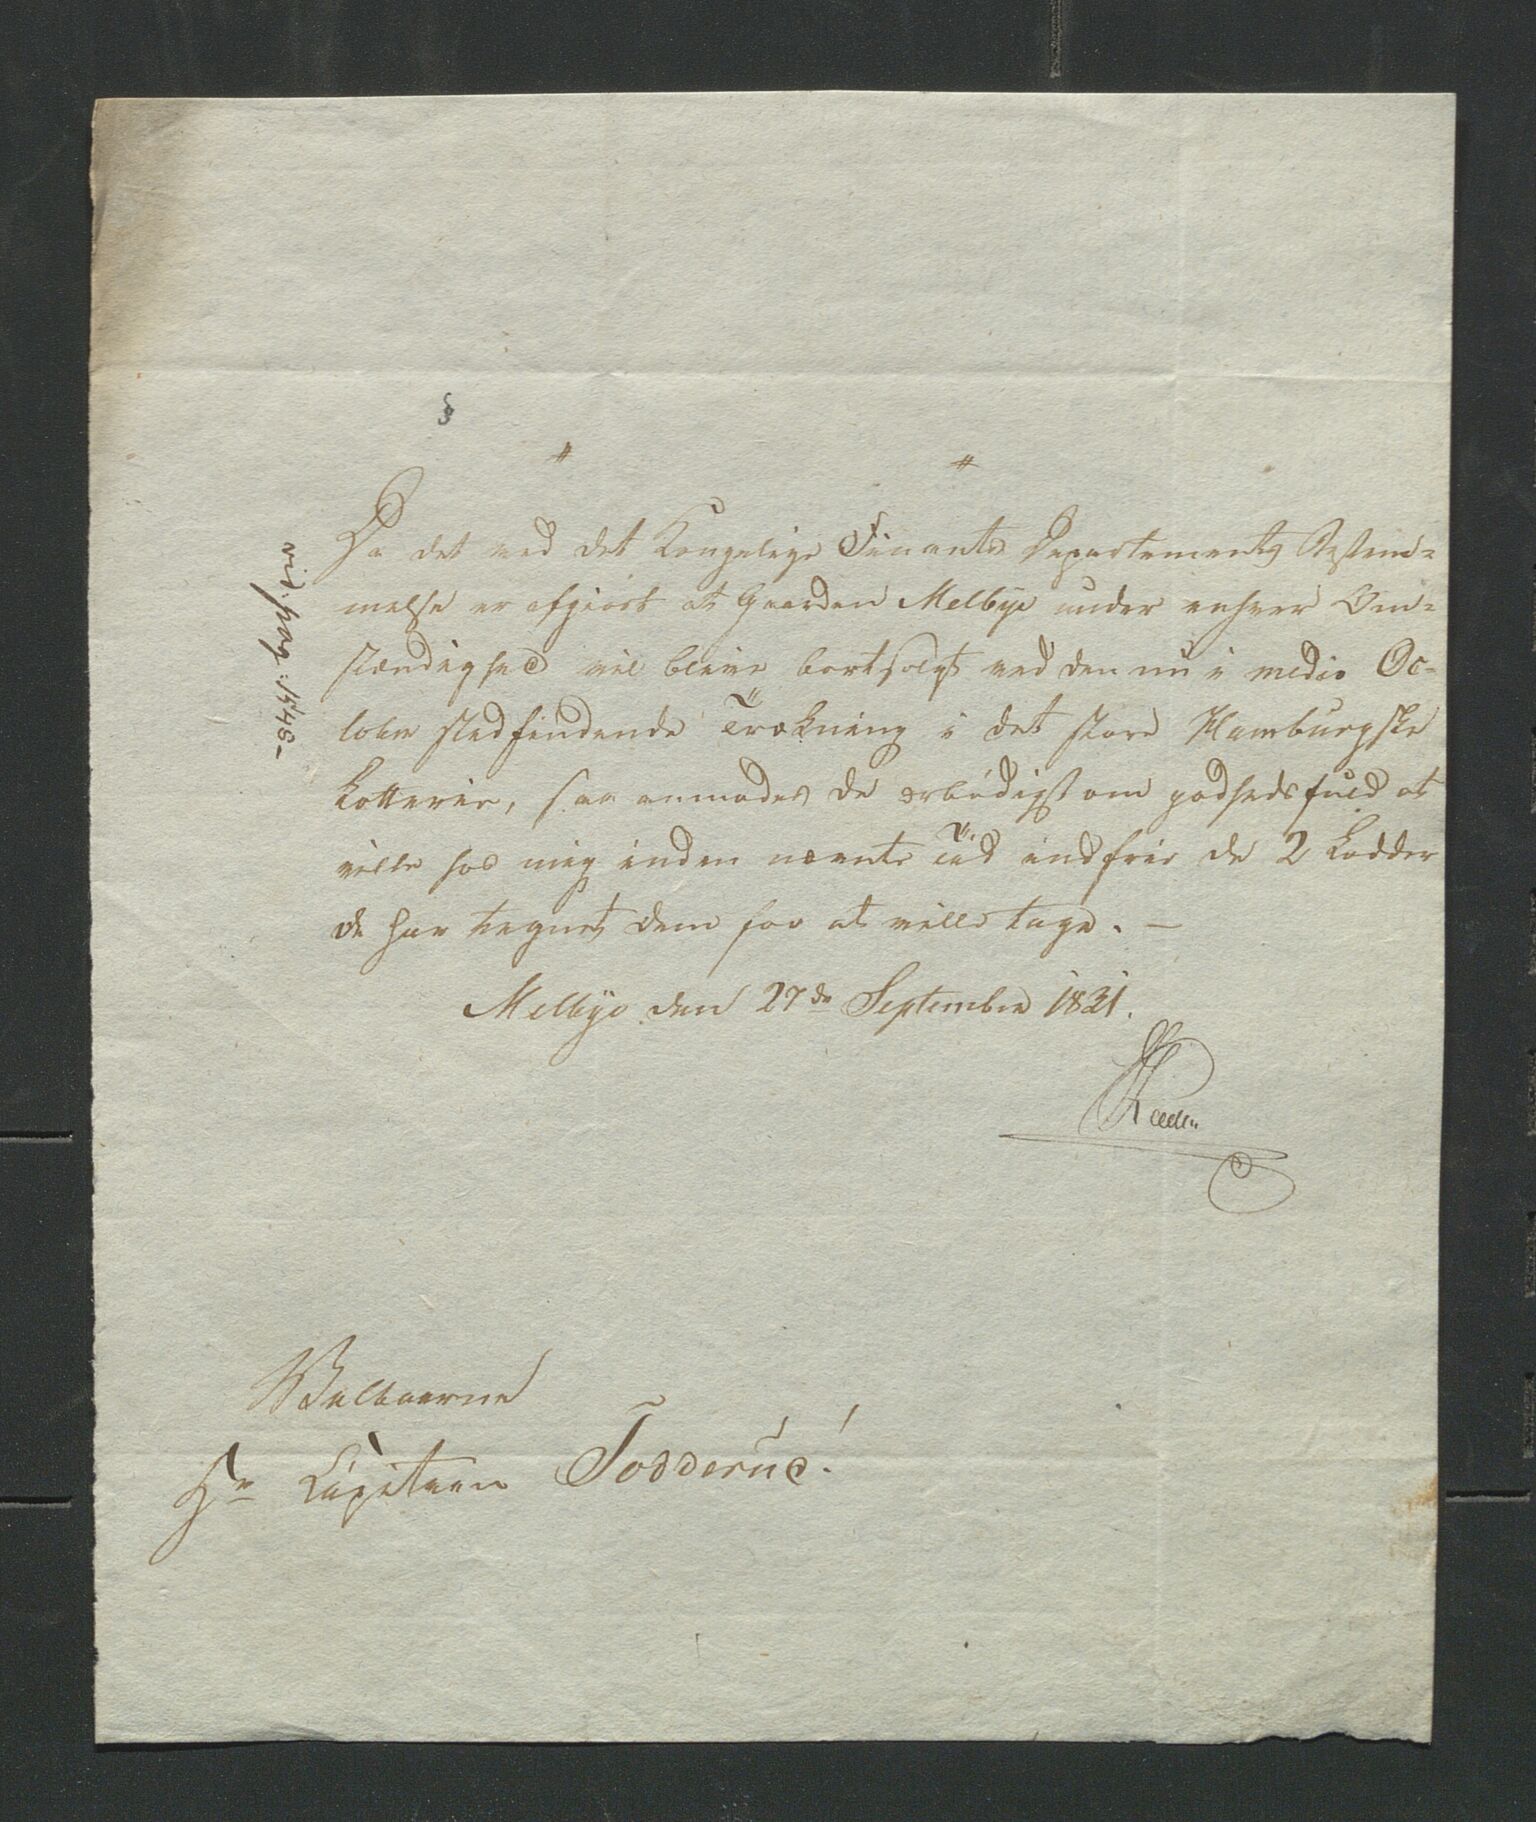 Da det ved det Kongelige Finants Departements Bestem=
melse er afgiort at Gaarden Melbye under enhver Om=
stændighed vil blive bortsolgt ved den nu i medio Oc=
tober stedfindende Trækning i det store Hamburgske
Lotterie, saa anmodes De ærbödigst om godhedsfuld at
ville hos mig inden nævnte Tiid indfrie de 2 Lodder
De har tegnet Dem for at ville tage. —
Melbye den 27de September 1831.
Velbaarne
Hr Capitain Todderud!
vid. pag: 1548-